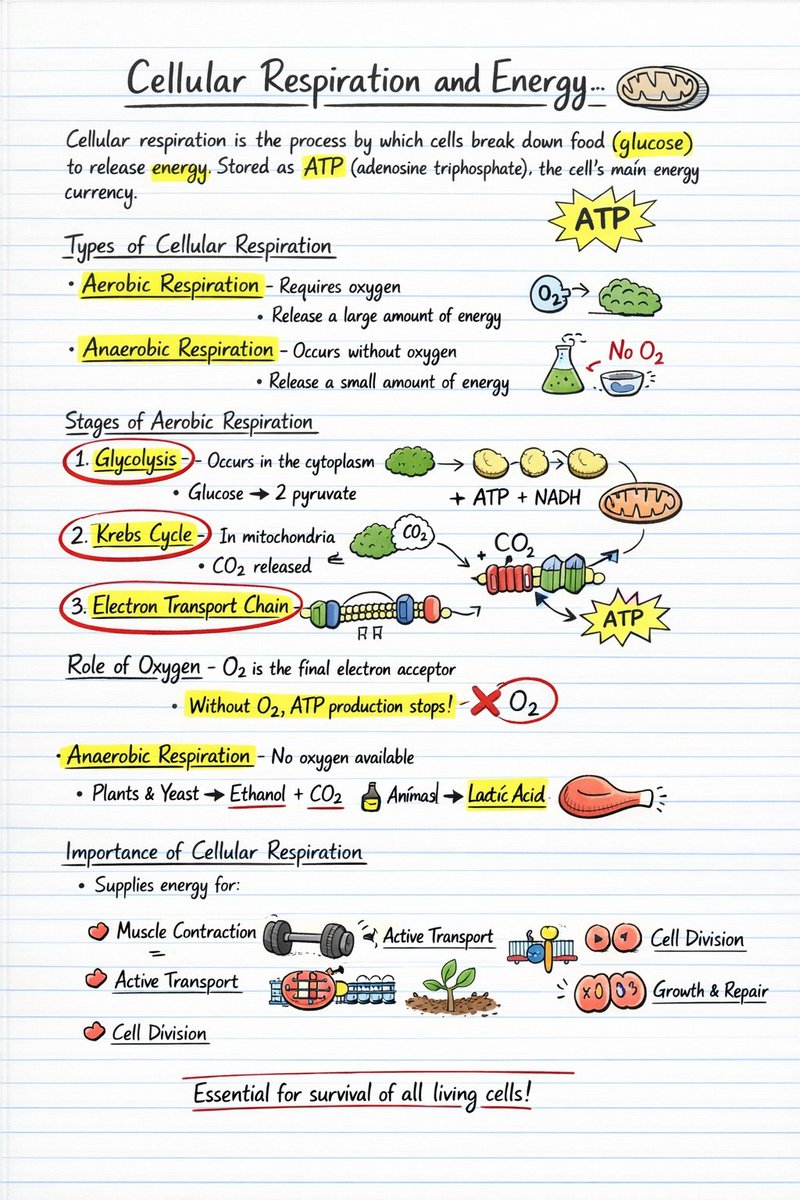 Cellular Respiration and Energy...
Cellular respiration is the process by which cells break down food (glucose)
to release energy. Stored as ATP (adenosine triphosphate), the cell's main energy
currency.
ATP
Types of Cellular Respiration
• Aerobic Respiration - Requires oxygen
O₂
• Release a large amount of energy
• Anaerobic Respiration - Occurs without oxygen
No O₂
• Release a small amount of energy
Stages of Aerobic Respiration
1. Glycolysis - - Occurs in the cytoplasm
• Glucose → 2 pyruvate
+ ATP + NADH
2. Krebs Cycle - In mitochondria
CO₂
+ CO₂
• CO₂ released
3. Electron Transport Chain -
ATP
Role of Oxygen - O₂ is the final electron acceptor
• Without O₂, ATP production stops! - ✗ O₂
• Anaerobic Respiration - No oxygen available
• Plants & Yeast → Ethanol + CO₂ Animal → Lactic Acid
Importance of Cellular Respiration
• Supplies energy for:
Muscle Contraction
Active Transport
Cell Division
Active Transport
Growth & Repair
Cell Division
Essential for survival of all living cells!